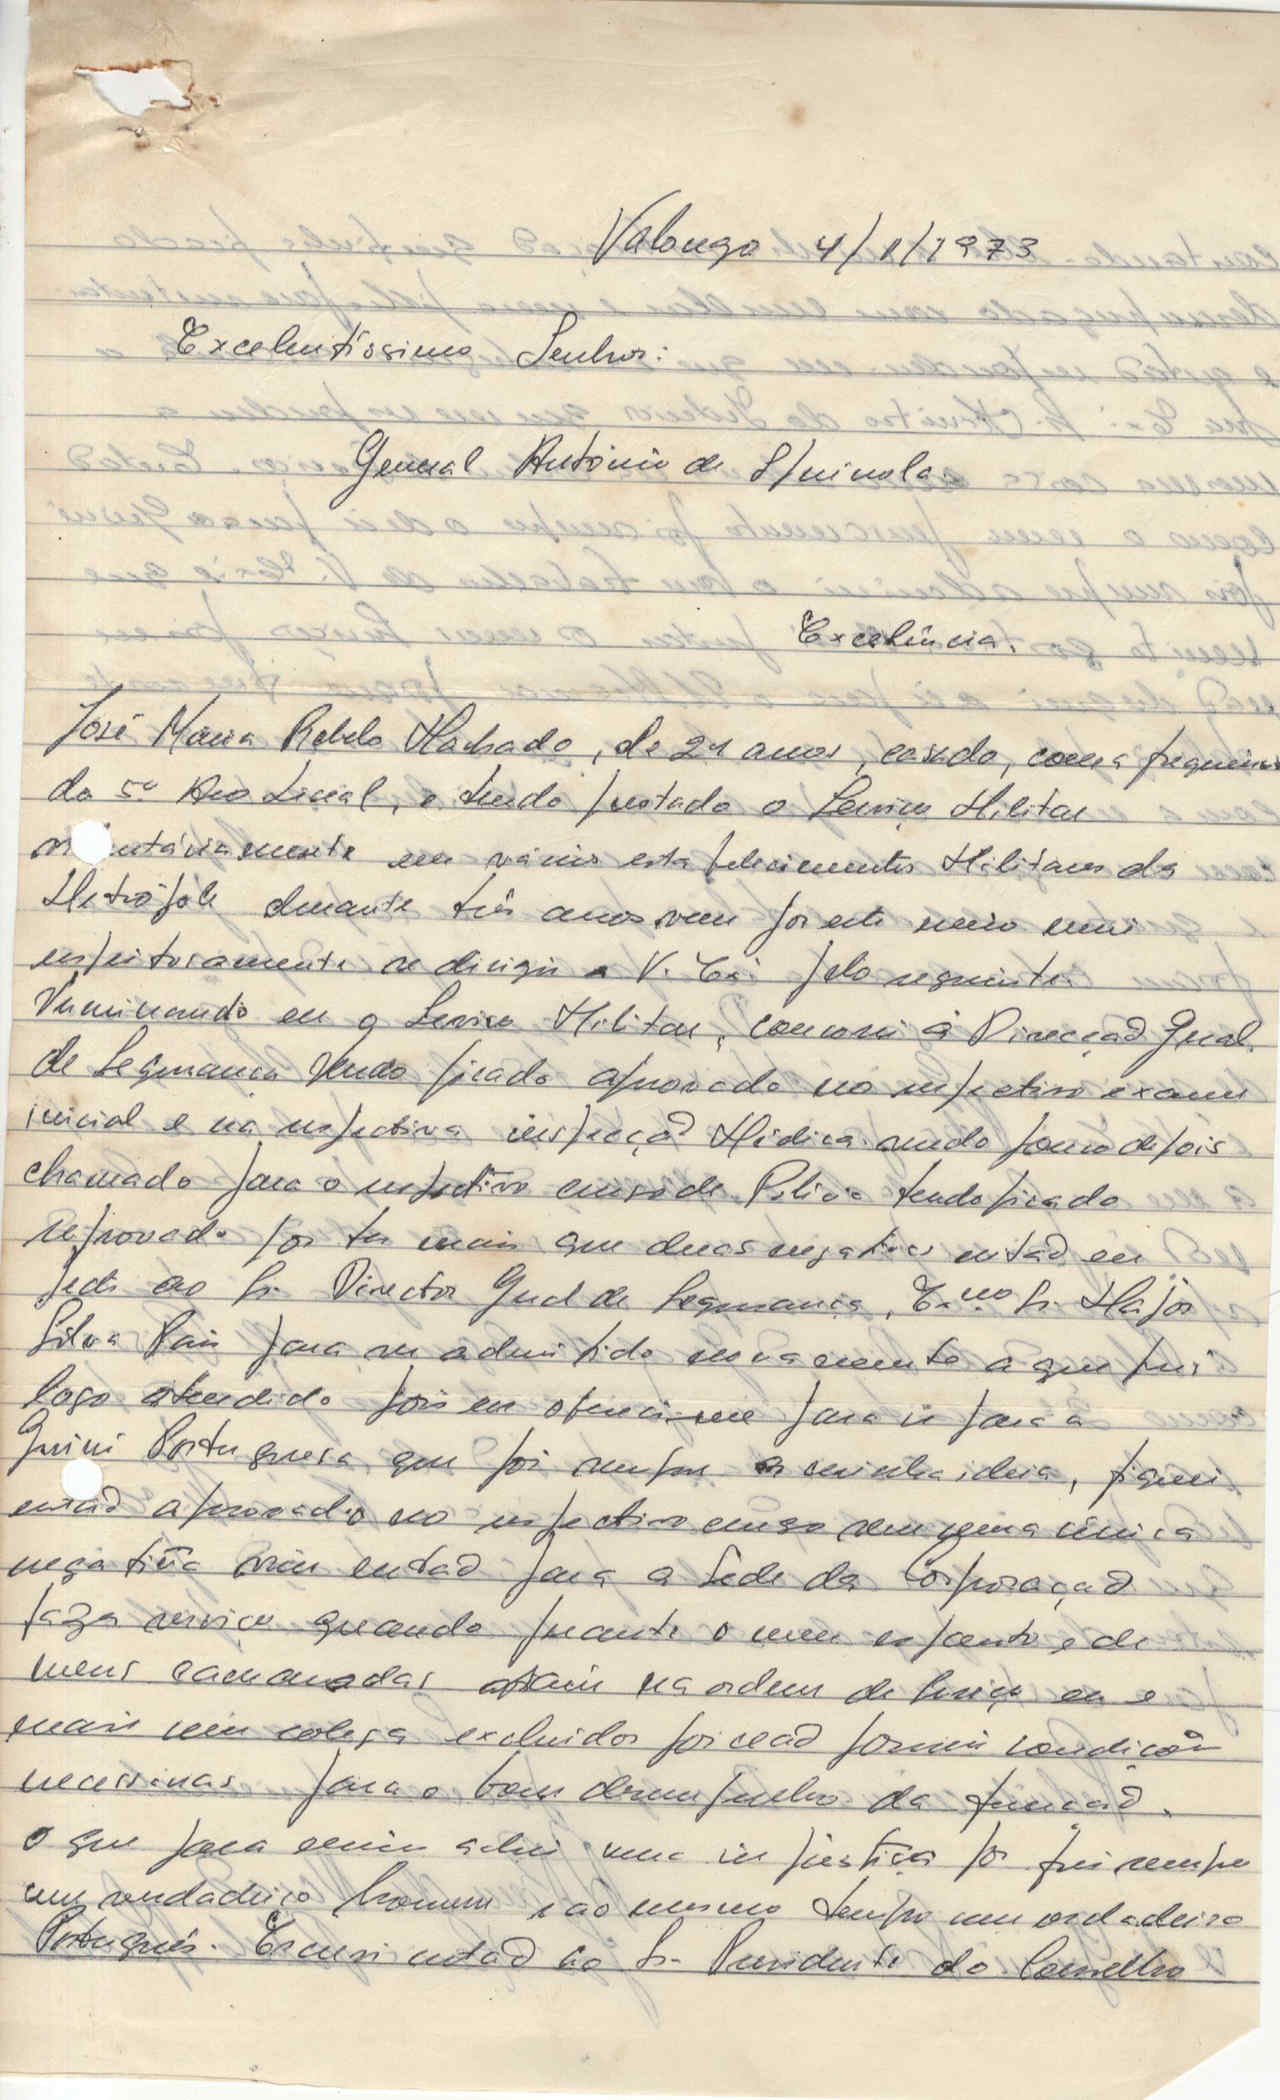 Valongo 4/1/1973
Excelentíssimo Senhor:
General António de Spinola.
Excelência.
José Maria Rebelo Machado, de 21 anos, casado, com a frequência
do 5º Ano Liceal, e tendo prestado o Serviço Militar
em vários estabelecimentos Militares da
Metrópole durante três anos vem por este meio mui
respeitosamente se dirigir a V. Exª pelo seguinte:
Terminando eu o Serviço Militar, concorri á Direcção Geral
de Segurança tendo ficado aprovado no respectivo exame
inicial e na respectiva inspecção Médica sendo pouco depois
chamado para o respectivo curso de Policia tendo ficado
reprovado por ter mais que duas negativas então eu
pedi ao Sr. Director Geral de Segurança, Exmo. Sr. Major
Silva Pais para ser admitido novamente a que fui
logo atendido pois eu ofereci-me para ir para a
Guiné Portuguesa que foi sempre a minha ideia, fiquei
então aprovado no respectivo curso sem uma única
negativa vim então para a Sede da Corporação
fazer serviço quando perante o meu espanto e de
meus camaradas saiu na ordem de serviço eu e
mais um colega excluidos por não possuir condições
necessárias para o bom desempenho da função.
o que para mim achei uma injustiça por fui sempre
um verdadeiro homem e ao mesmo tempo um verdadeiro
Português. Escrevi então ao Sr. Presidente do Conselho